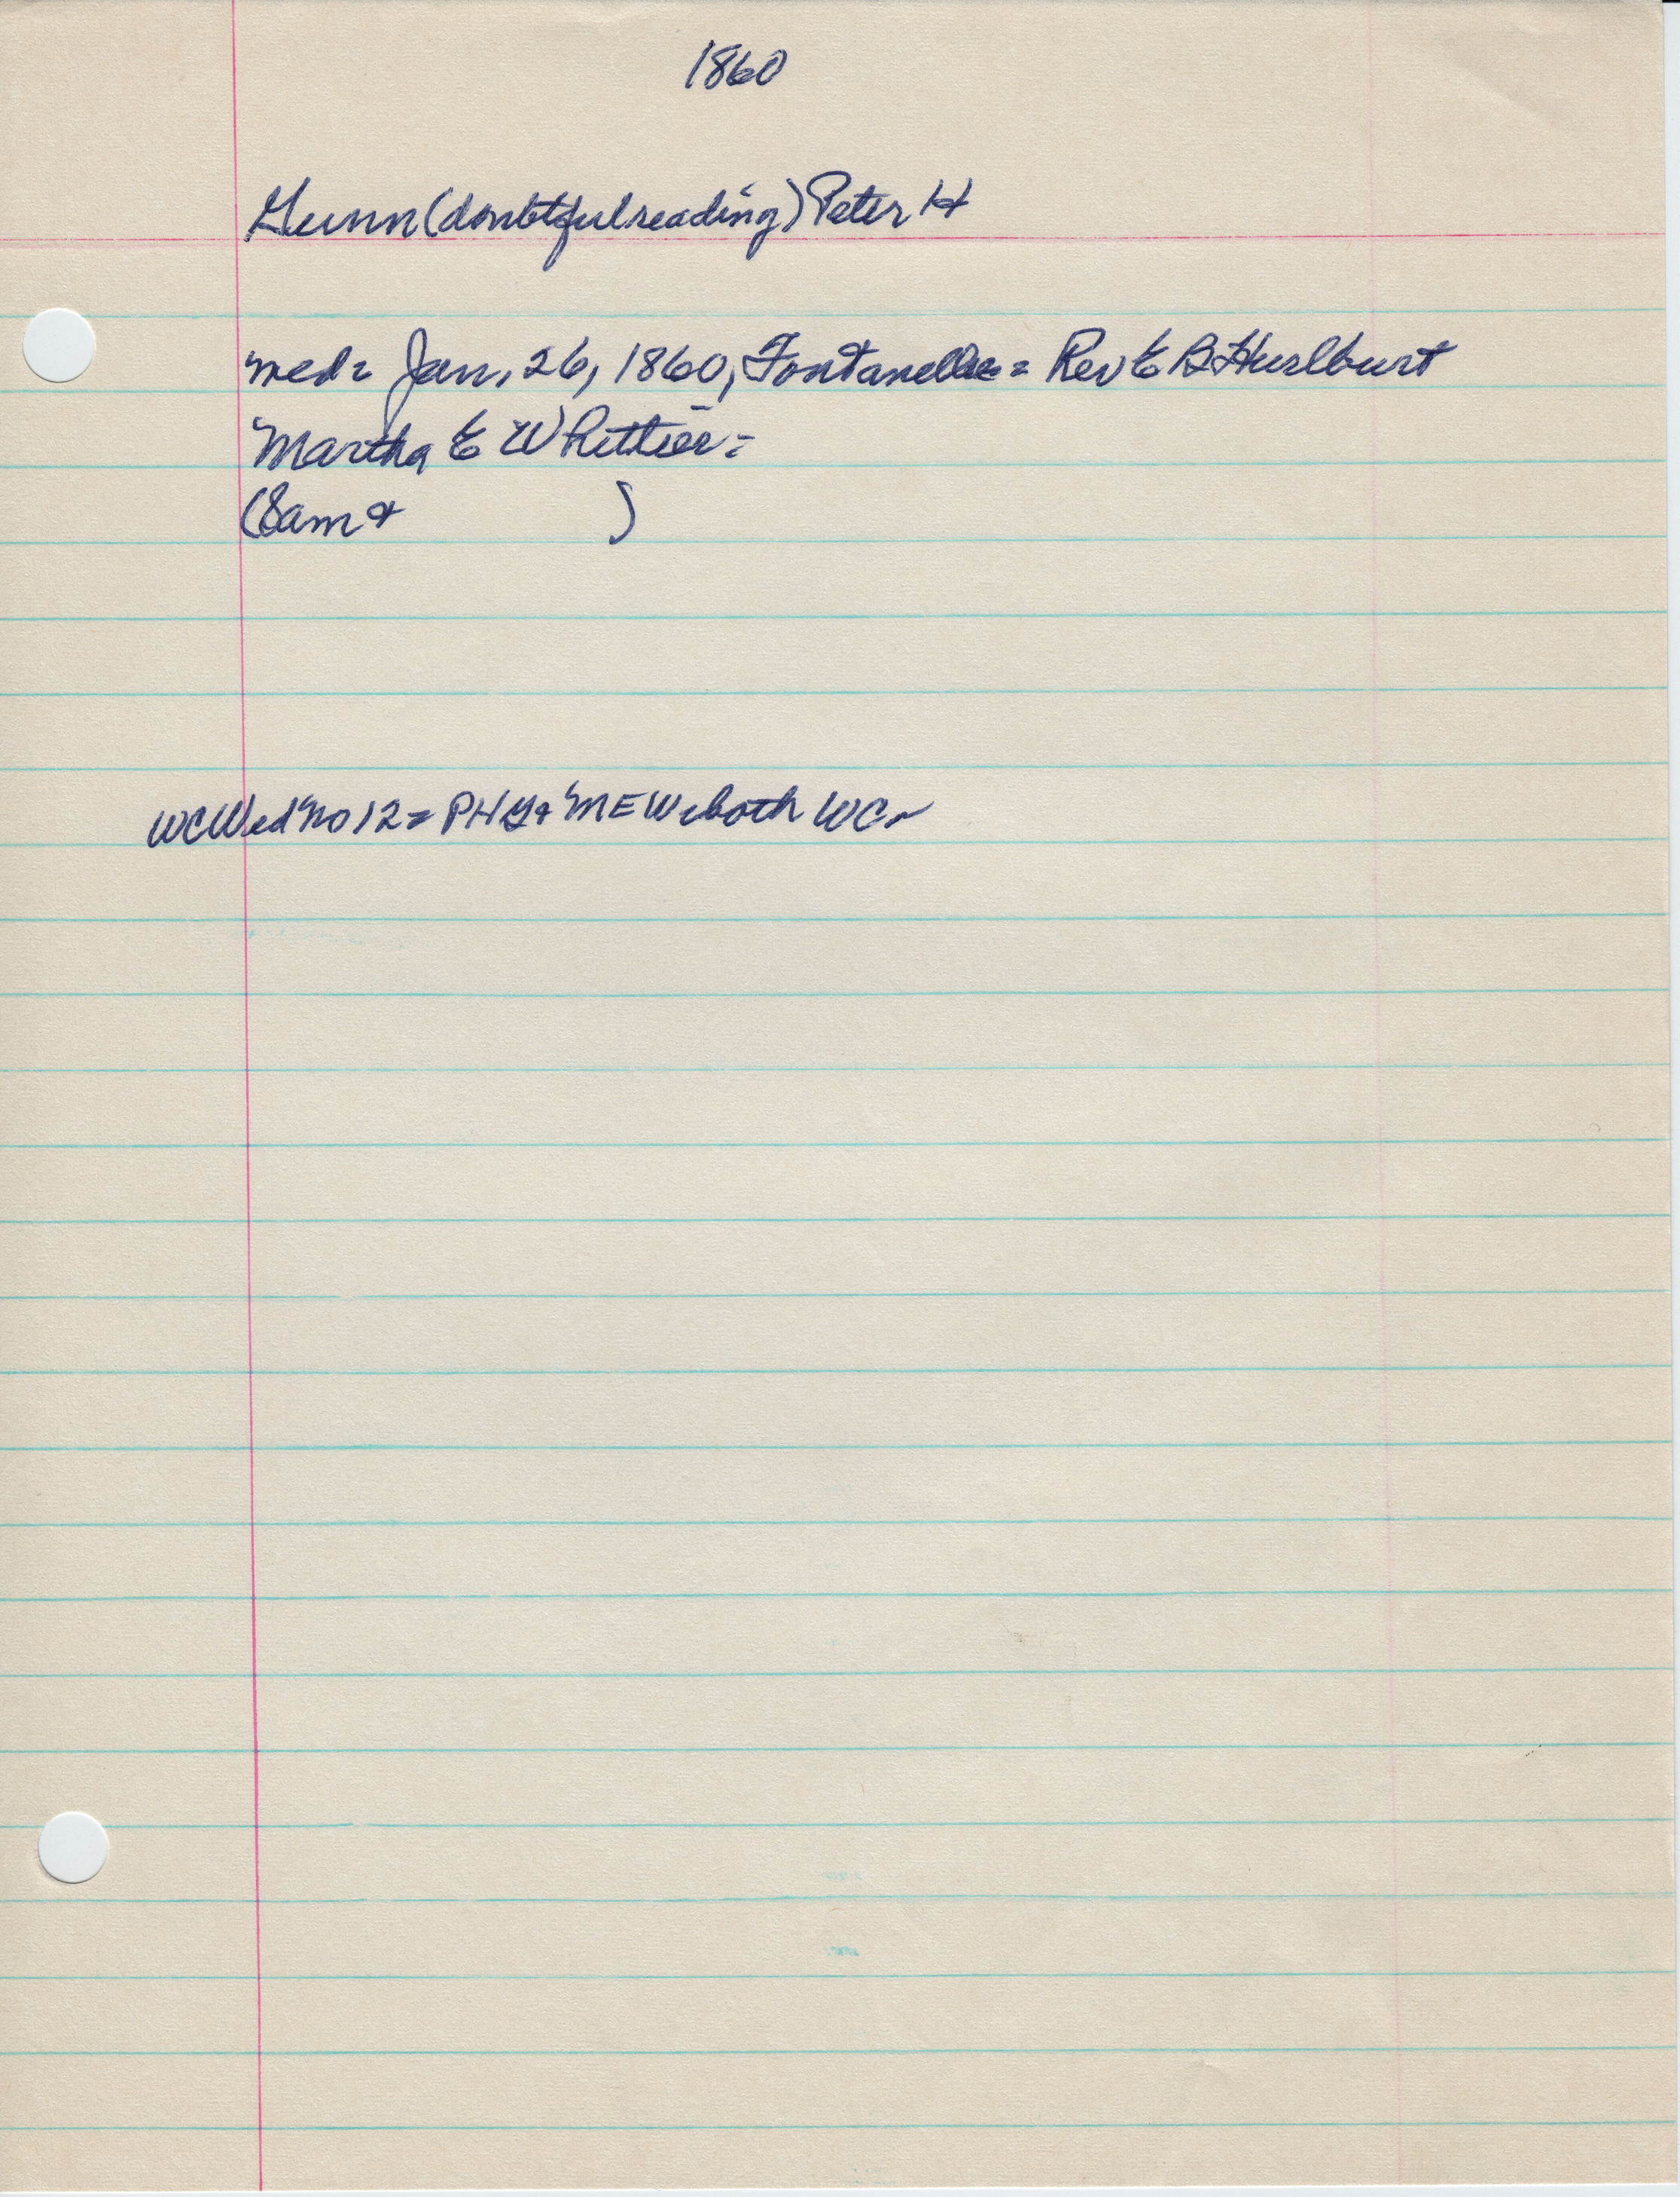 1860
Gunn (doubtful reading) Peter H
med= Jan. 26, 1860, Fontanelle = Rev E B Hurlburt
Martha E Whittier =
(Sam & )
WC Wed No 12 = PHG & MEW = both WC